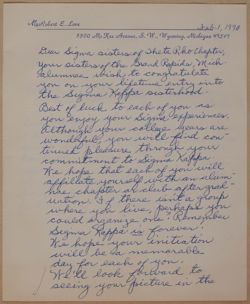 Mrs. Robert E. Lane
Feb. 1, 1990
Wyoming, Michigan 49509
Dear Sigma sisters of Theta Rho Chapter,
Your sisters of the Grand Rapids, Mich
Alumnae wish to congratulate
you on your lifetime entry into
the Sigma Kappa sisterhood.
Best of luck to each of you as
you enjoy your Sigma experiences.
Although your college years are
wonderful, you will find con-
tinued pleasure through your
commitment to Sigma Kappa.
We hope that each of you will
affiliate yourself with an alum-
nae chapter or club after grad-
uation. If there isn't a group
where you live, perhaps you
could organize one! Remember
Sigma Kappa is forever!
We hope your initiation
will be a memorable
day for each of you.
We'll look forward to
seeing your picture in the